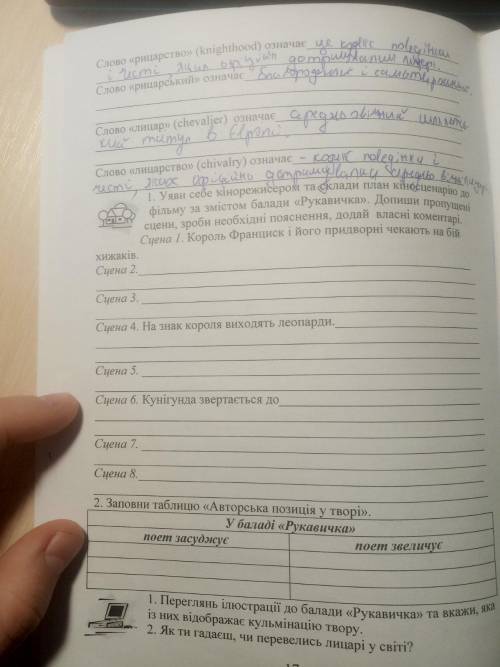 Слово «рицарство» (knighthood) означає це кодекс поведінки
і честі, яких дотримували лицарі.
Слово «рицарський» означає благородний і самовідданий.
Слово «лицар» (chevalier) означає середньовічний
титул в Європі.
Слово «лицарство» (chivalry) означає - кодекс поведінки і
честі, яких дотримувались
1. Уяви себе кінорежисером та склади план кіносценарію до
фільму за змістом балади «Рукавичка». Допиши пропущені
сцени, зроби необхідні пояснення, додай власні коментарі.
Сцена 1. Король Франциск і його придворні чекають на бій
хижаків.
Сцена 2.
Сцена 3.
Сцена 4. На знак короля виходять леопарди.
Сцена 5.
Сцена 6. Кунігунда звертається до
Сцена 7.
Сцена 8.
2. Заповни таблицю «Авторська позиція у творі».
У баладі «Рукавичка»
поет засуджує поет звеличує
1. Переглянь ілюстрації до балади «Рукавичка» та вкажи, яка
із них відображає кульмінацію твору.
2. Як ти гадаєш, чи перевелись лицарі у світі?